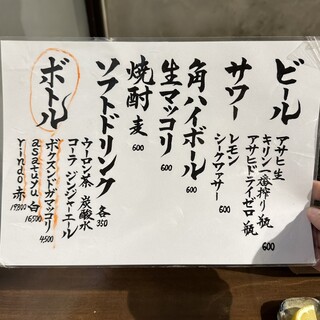 ビール
アサヒ生
キリン一番搾り 瓶
アサヒドライゼロ 瓶
600
サワー
レモン
シークァサー
600
角ハイボール
600
生マッコリ
600
焼酎 麦
600
ソフトドリンク 各350
ウーロン茶 炭酸水
コーラ ジンジャーエール
ボトル
ボクスンドガマッコリ
4500
asatuyu 白
16500
rindo 赤
19800